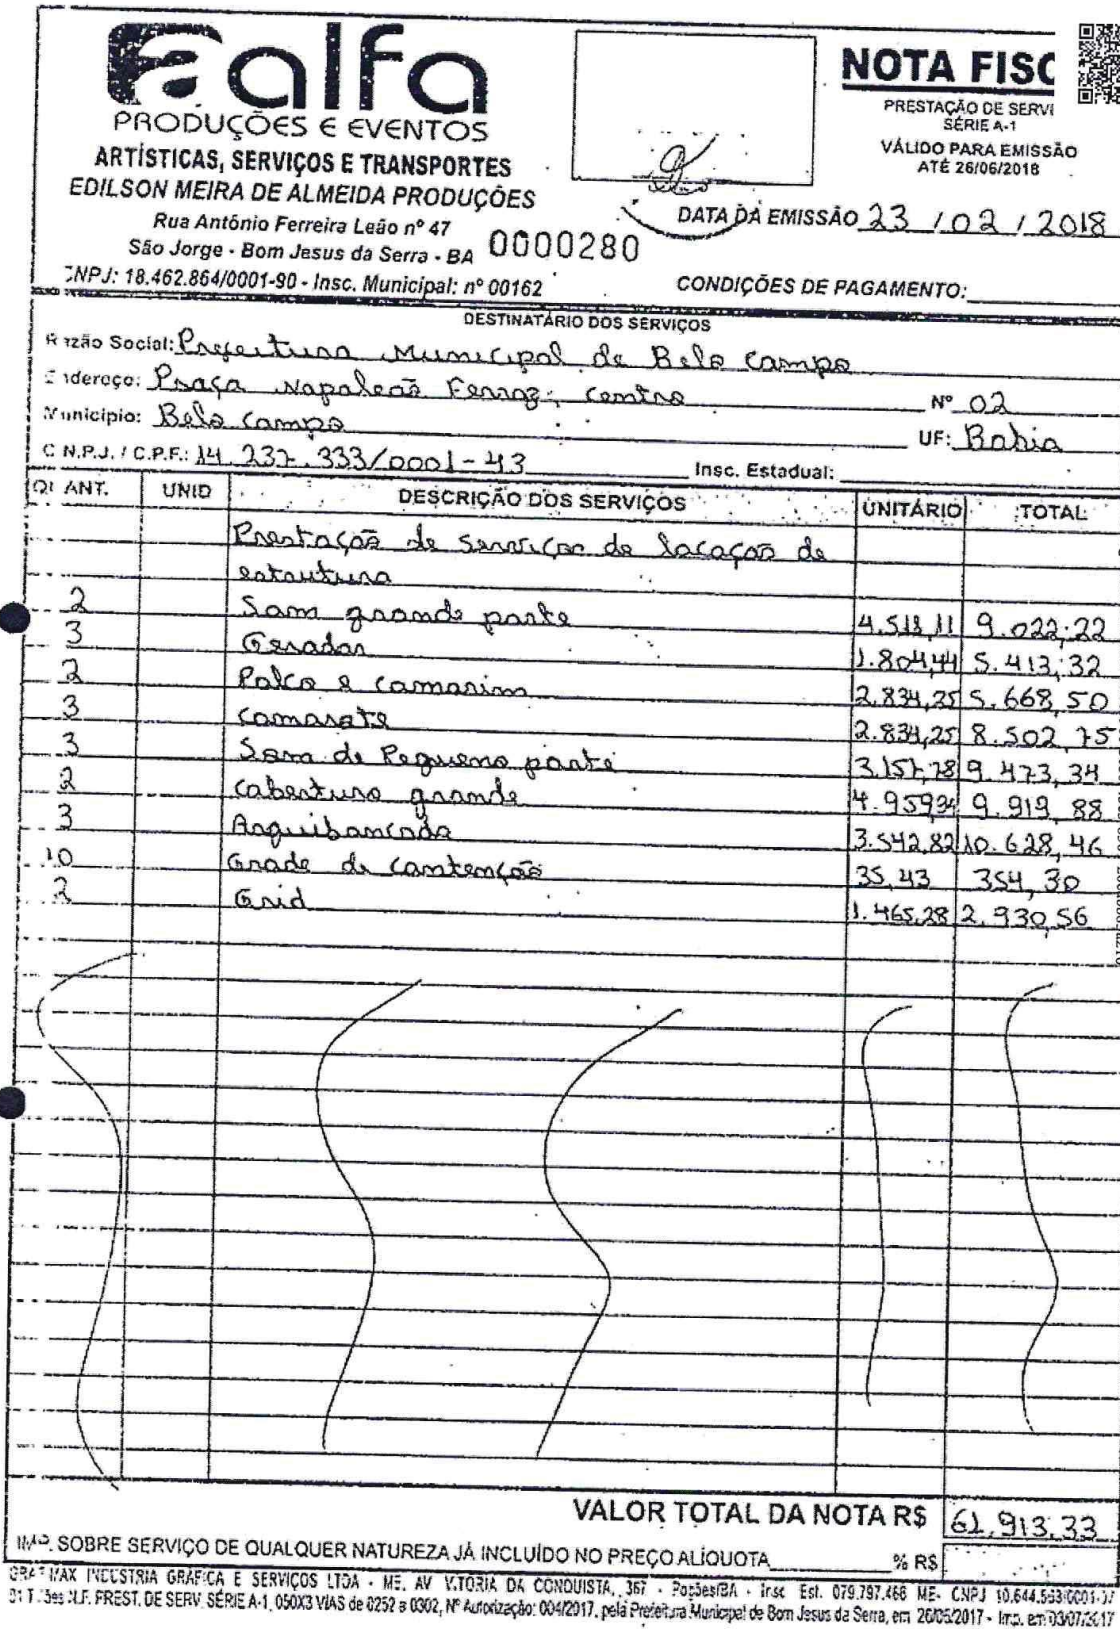 alfa
PRODUÇÕES E EVENTOS
ARTÍSTICAS, SERVIÇOS E TRANSPORTES
EDILSON MEIRA DE ALMEIDA PRODUÇÕES
Rua Antônio Ferreira Leão nº 47
São Jorge - Bom Jesus da Serra - BA 0000280
CNPJ: 18.462.864/0001-90 - Insc. Municipal: nº 00162
NOTA FISC
PRESTAÇÃO DE SERVI
SÉRIE A-1
VÁLIDO PARA EMISSÃO
ATÉ 26/06/2018
DATA DA EMISSÃO 23 / 02 / 2018
CONDIÇÕES DE PAGAMENTO:
DESTINATÁRIO DOS SERVIÇOS
Razão Social: Prefeitura Municipal de Belo Campo
Endereço: Praça Napoleão Ferraz, centro Nº 02
Município: Belo Campo UF: Bahia
C.N.P.J. / C.P.F.: 14.237.333/0001-43 Insc. Estadual:
QUANT. UNID DESCRIÇÃO DOS SERVIÇOS UNITÁRIO TOTAL
Prestação de serviços de locação de
estrutura
2 Som grande porte 4.511,11 9.022,22
3 Gerador 1.804,44 5.413,32
2 Palco e camarim 2.834,25 5.668,50
3 Camarote 2.834,25 8.502,75
3 Som de Pequeno porte 3.157,78 9.473,34
2 Cobertura grande 4.959,94 9.919,88
3 Arquibancada 3.542,82 10.628,46
10 Grade de contenção 35,43 354,30
2 Grid 1.465,28 2.930,56
VALOR TOTAL DA NOTA R$ 61.913,33
IMP. SOBRE SERVIÇO DE QUALQUER NATUREZA JÁ INCLUÍDO NO PREÇO ALÍQUOTA % R$
GRAFMAX INDÚSTRIA GRÁFICA E SERVIÇOS LTDA - ME. AV VITÓRIA DA CONQUISTA, 367 - Poções/BA - Insc Est. 079.797.466 ME- CNPJ 10.644.553/0001-07
01 T. Ses N.F. PREST. DE SERV. SÉRIE A-1, 050X3 VIAS de 0252 a 0302, Nº Autorização: 004/2017, pela Prefeitura Municipal de Bom Jesus da Serra, em 26/05/2017 - Imp. em 03/07/2017